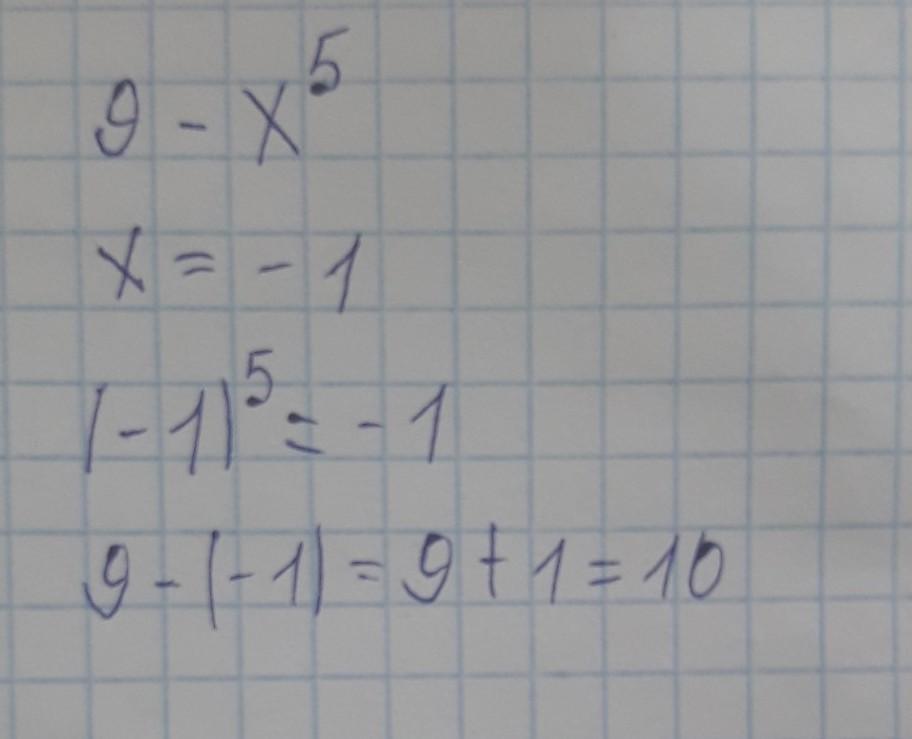 9 - x⁵
x = - 1
(-1)⁵ = - 1
9 - (-1) = 9 + 1 = 10